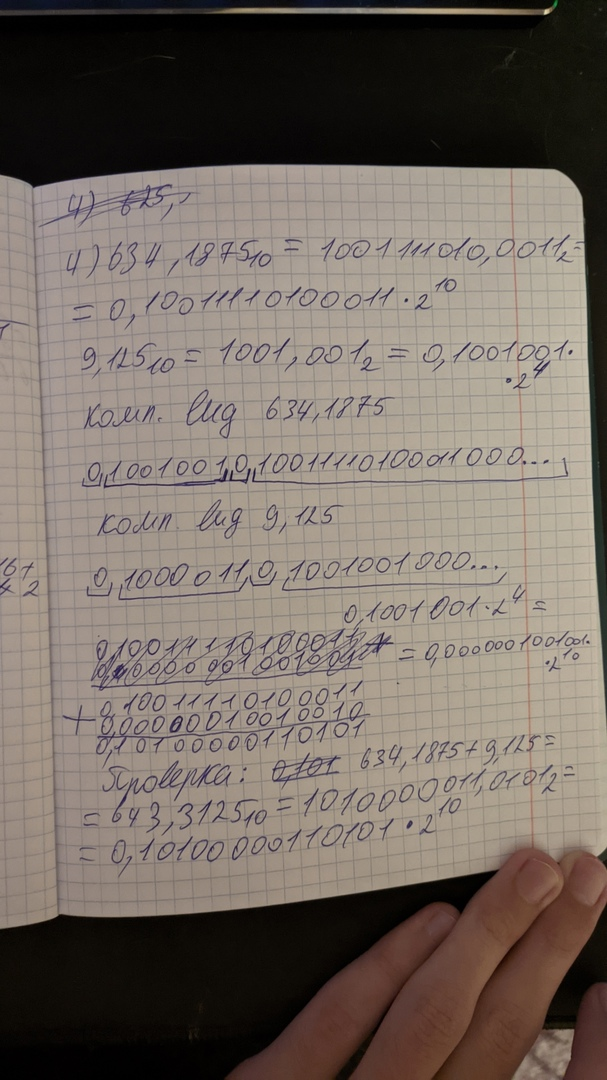 4) 625,
4) 634,1875₁₀ = 1001111010,0011₂ =
= 0,10011110100011 · 2¹⁰
9,125₁₀ = 1001,001₂ = 0,1001001 ·
· 2⁴
комп. вид 634,1875
0,1001001,0,10011110100011000...
комп. вид 9,125
0,1000011,0,1001001000...
0,1001001 · 2⁴ =
= 0,0000001001001 ·
· 2¹⁰
+ 0,10011110100011
0,00000010010010
0,10100000110101
Проверка: 0,101 634,1875 + 9,125 =
= 643,3125₁₀ = 1010000011,0101₂ =
= 0,10100000110101 · 2¹⁰